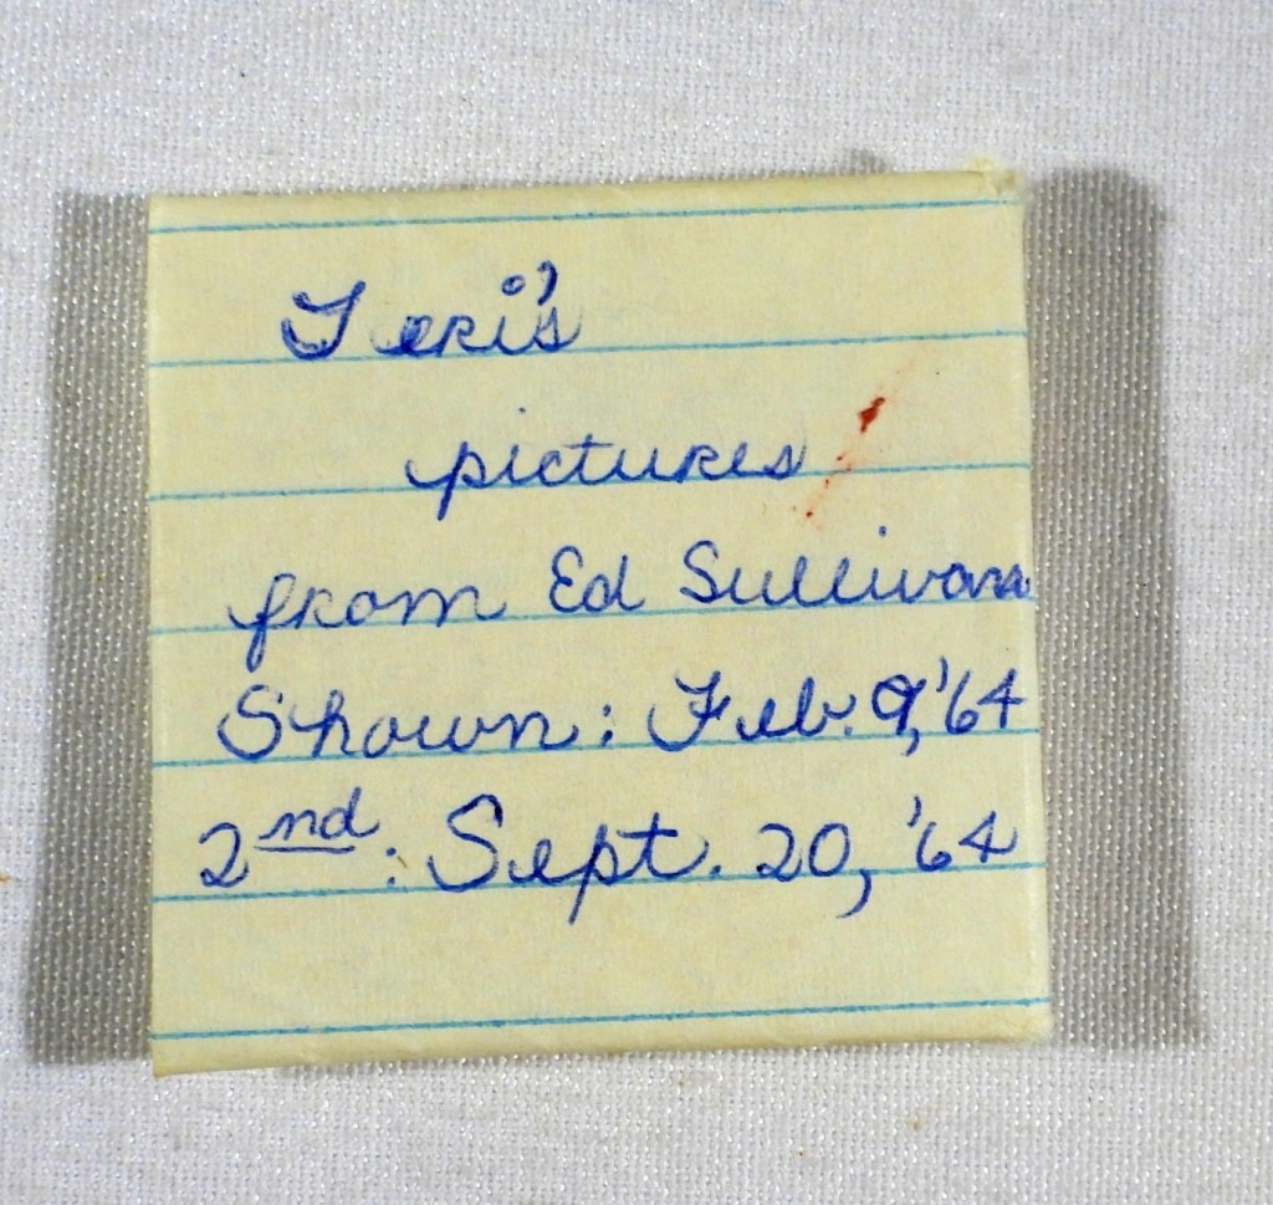 Teri's
pictures
from Ed Sullivan
Shown: Feb. 9, '64
2nd: Sept. 20, '64